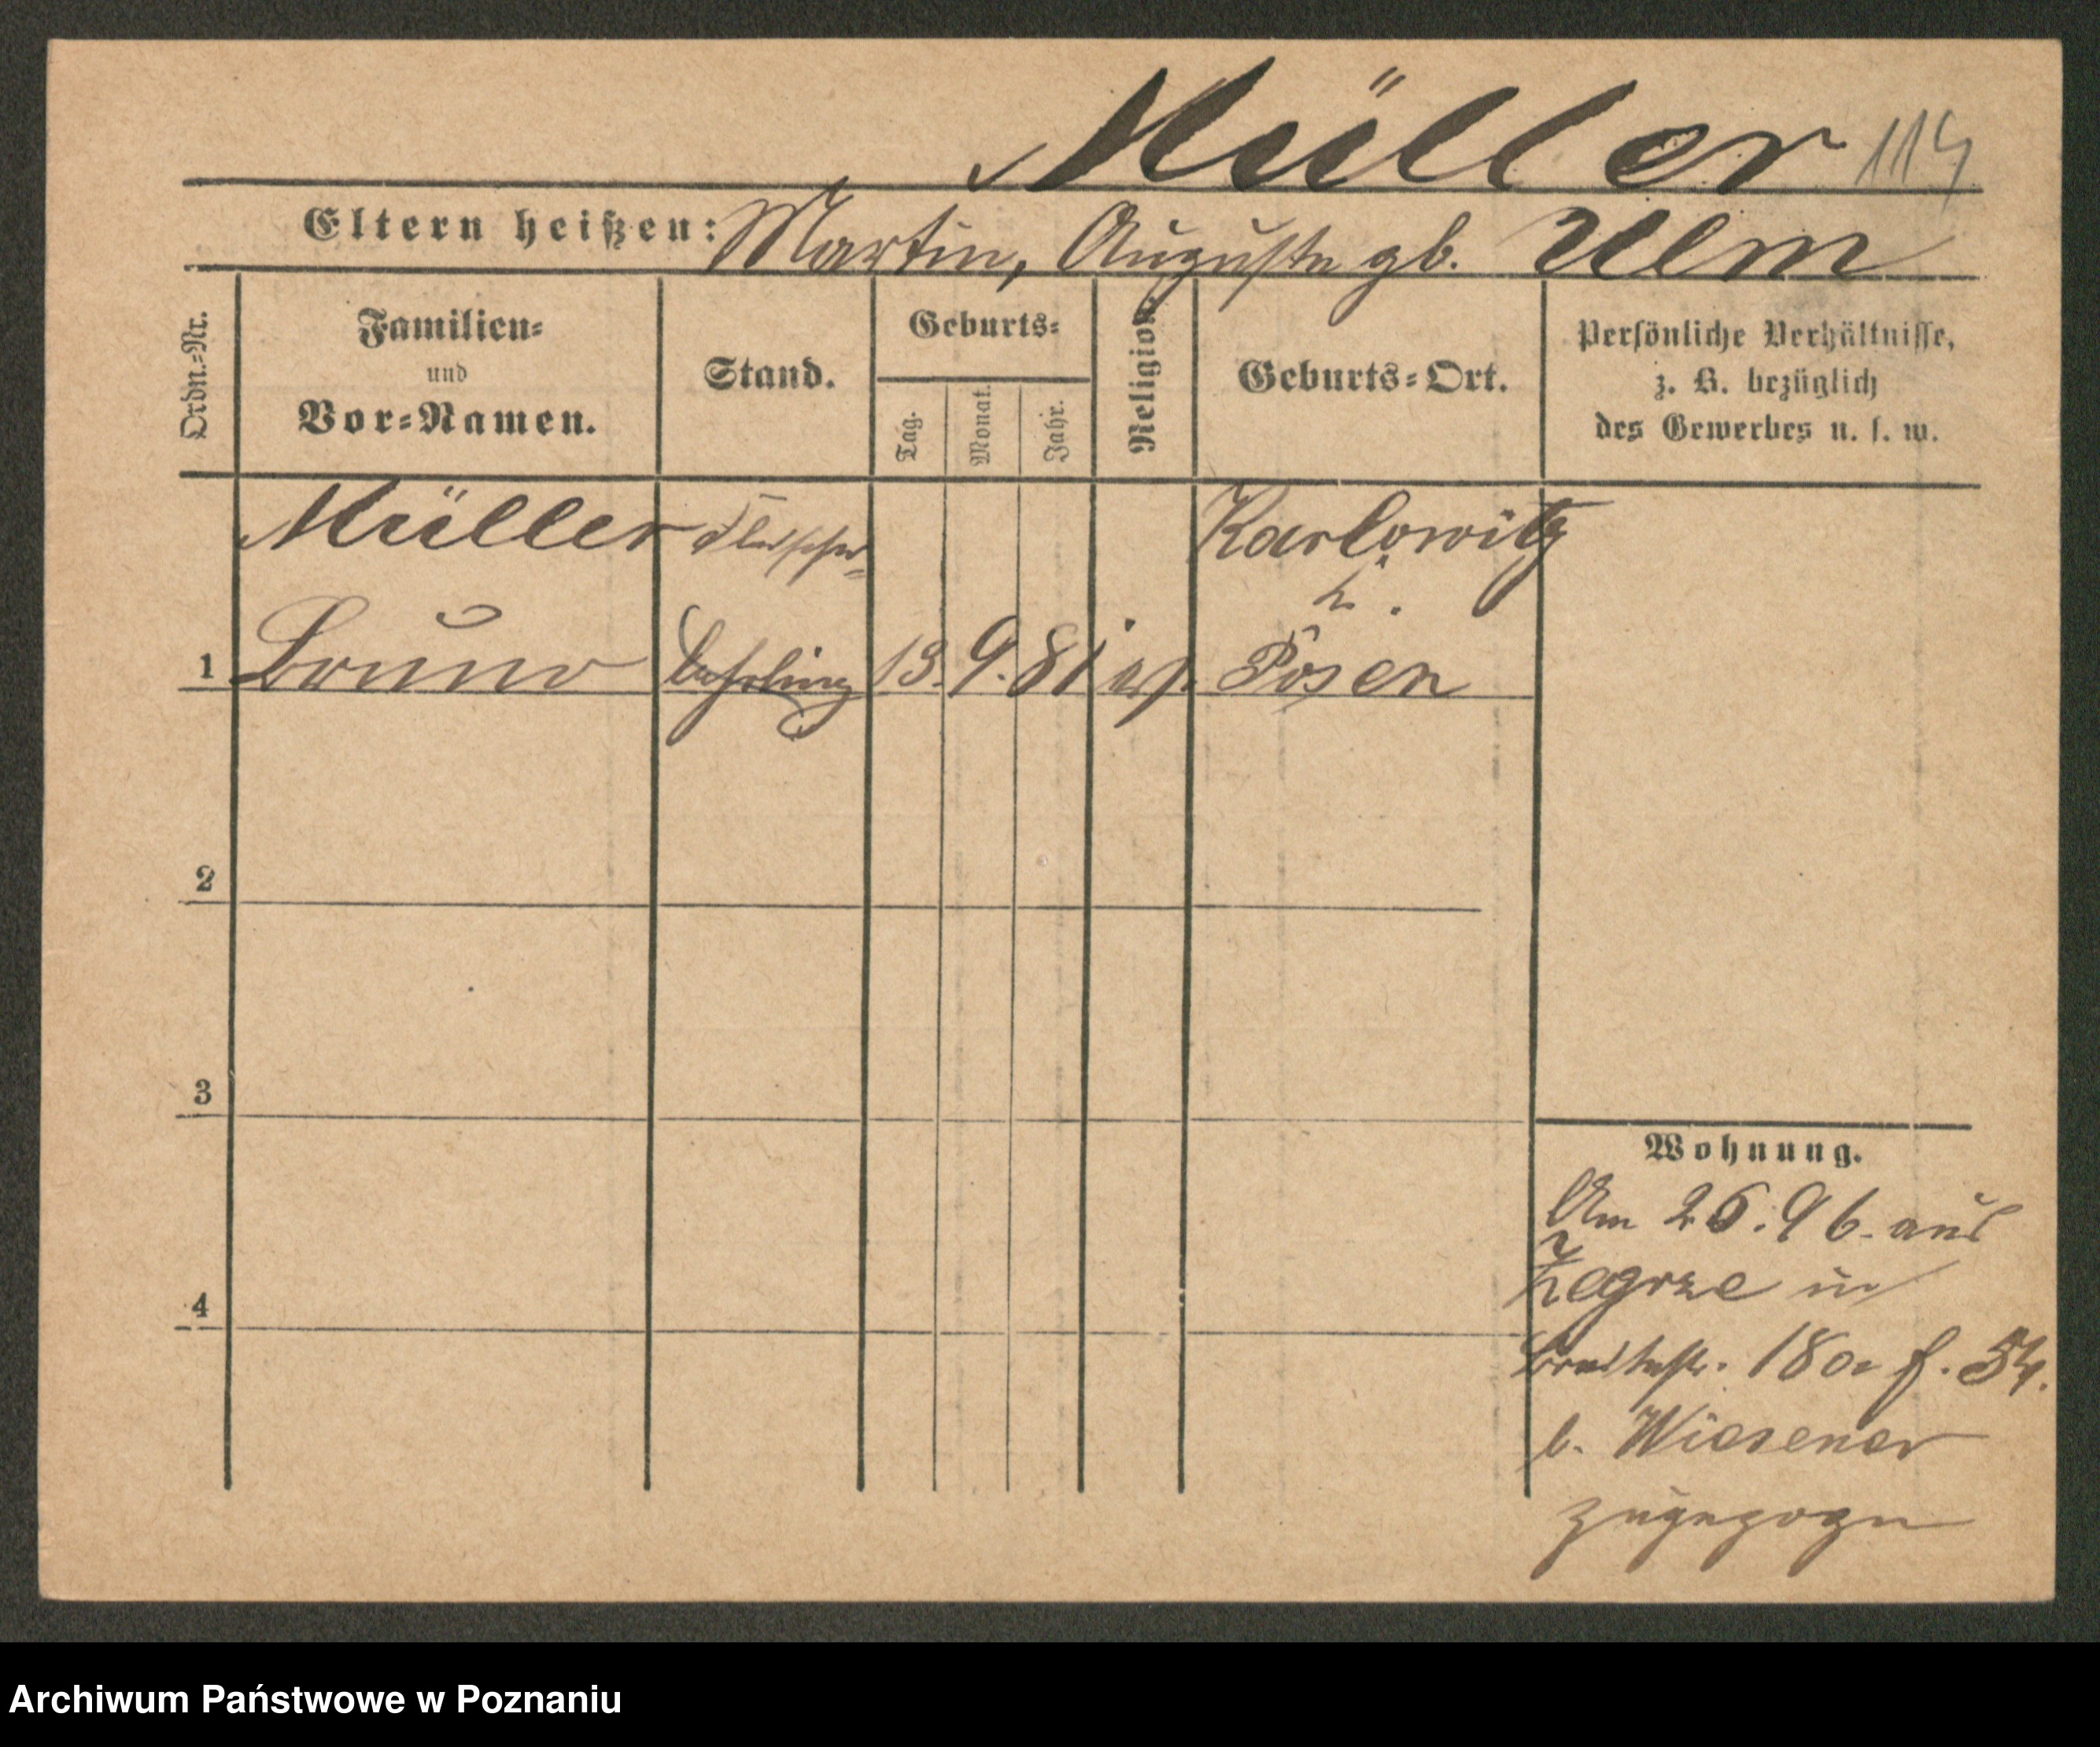 Müller 114
Eltern heißen: Martin, Auguste gb. Ulm
Ordn.=Nr.
Familien=
und
Vor=Namen.
Stand.
Geburts=
Tag.
Monat.
Jahr.
Religion.
Geburts=Ort.
Persönliche Verhältnisse,
z. B. bezüglich
des Gewerbes u. s. w.
Müller Fleischer= Karlowitz
b.
1 Bruno Lehrling 13. 9. 81 ev. Posen
2
3
4
Wohnung.
Am 26. 9 6. aus
Zegrze in
Breitestr. 18a f. 54.
b. Wiesener
zugezogen
Archiwum Państwowe w Poznaniu